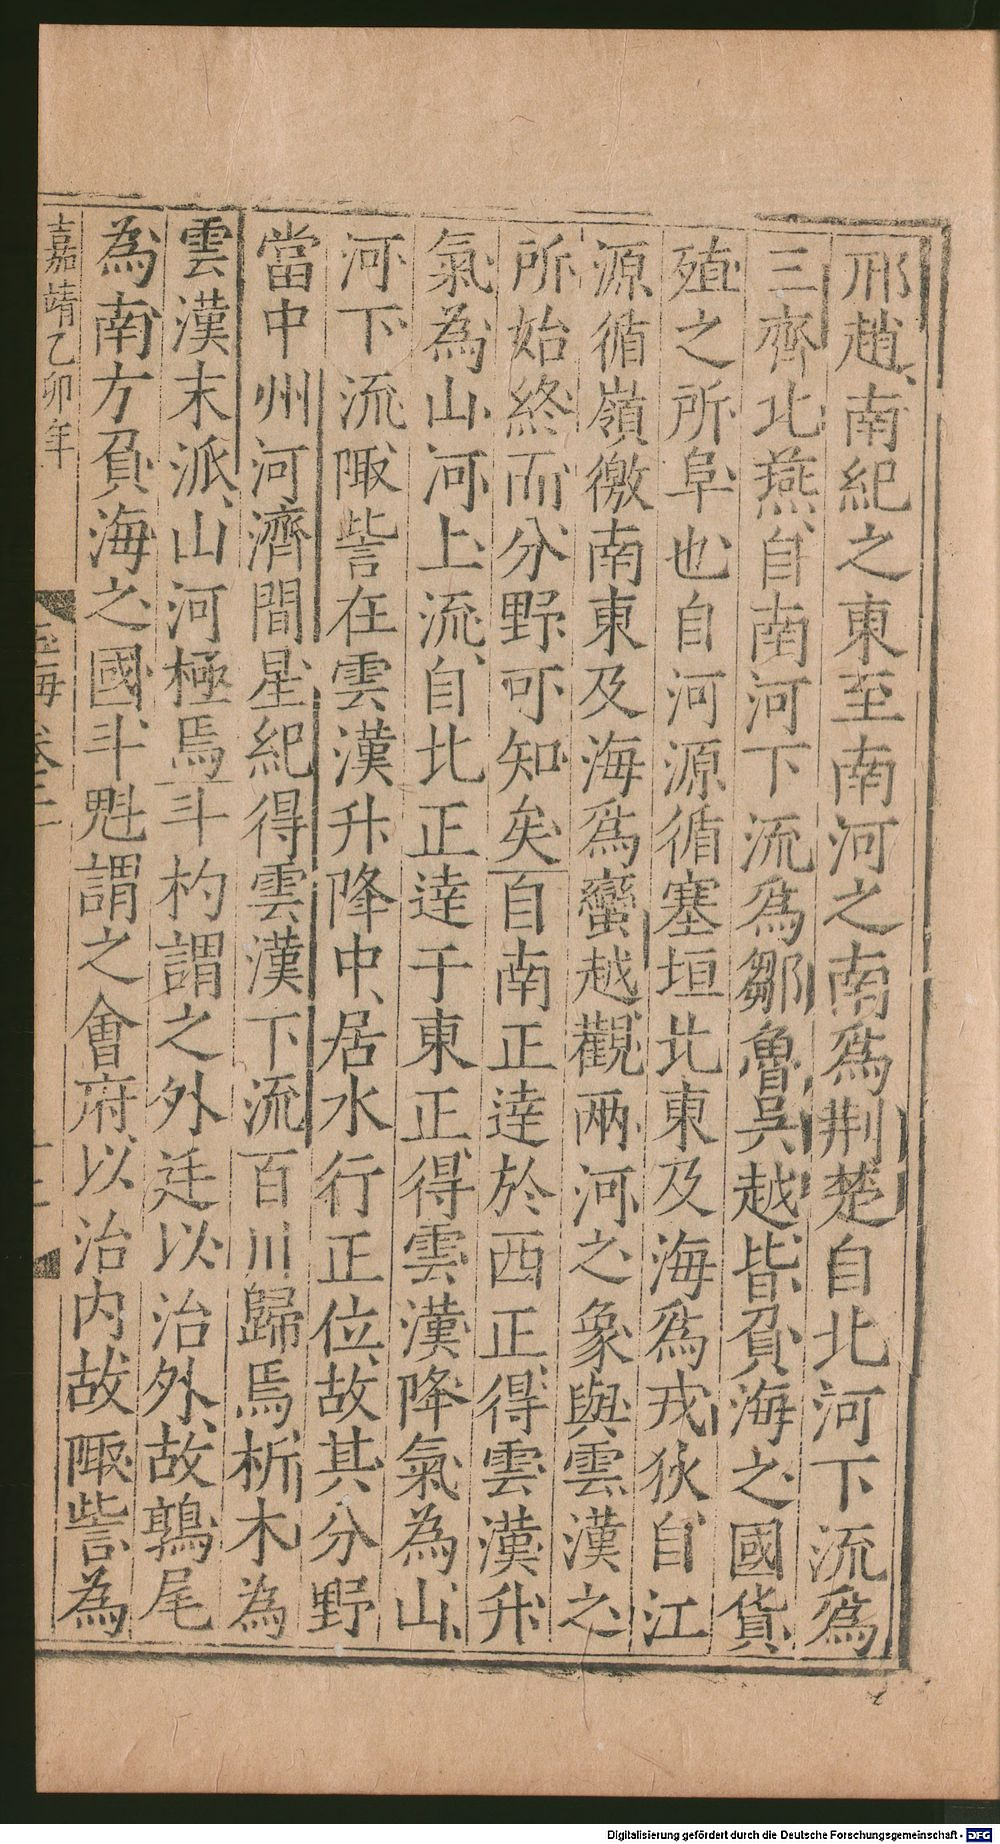 邢趙南紀之東至南河之南爲荆楚自北河下流爲
三齊北燕自南河下流爲鄒魯吳越皆負海之國貨
殖之所阜也自河源循塞垣北東及海爲戎狄自江
源循嶺徼南東及海爲蠻越觀兩河之象與雲漢之
所始終而分野可知矣自南正逹於西正得雲漢升
氣為山河上流自北正逹于東正得雲漢降氣為山
河下流陬訾在雲漢升降中居水行正位故其分野
當中州河濟間星紀得雲漢下流百川歸焉析木為
雲漢末派山河極焉斗杓謂之外廷以治外故鶉尾
為南方負海之國斗魁謂之會府以治内故陬訾為
嘉靖乙卯年
玉海卷二
Digitalisierung gefördert durch die Deutsche Forschungsgemeinschaft - DFG